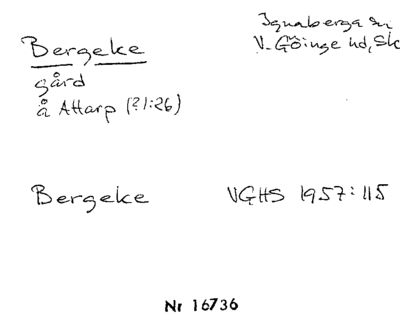 Bergeke
Ignaberga sn
V. Göinge hd, Sk
gård
å Attarp (?1:26)
Bergeke VGHS 1957:115
Nr 16736